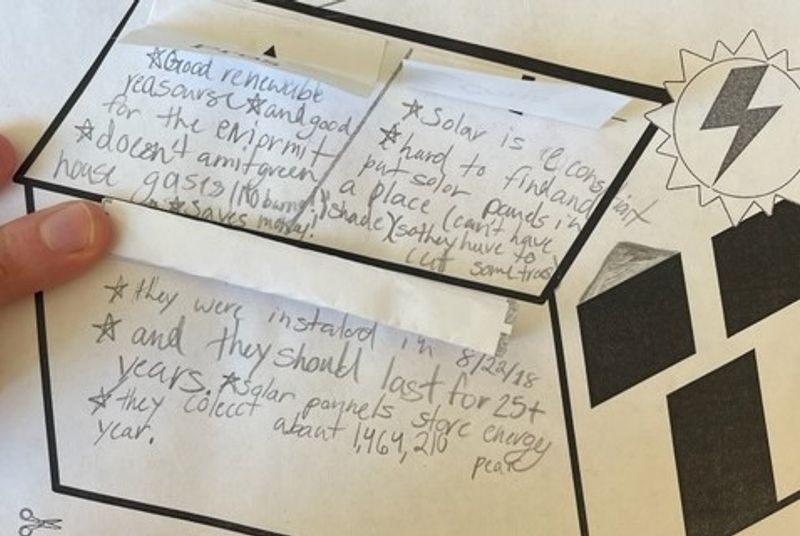 ☆Good renewable
reasourse ☆and good
for the eniprmit
☆doesn't amit green
house gases (No burning!)
☆Saves money!
☆Solar is
☆hard to find and
put solor panels in
a place (can't have
shade) (so they have to
cut some trees)
☆they were instalod in 8/22/18
☆ and they should last for 25+
years. ☆solar pannels store energy
☆they colect about 1,464,210
year.